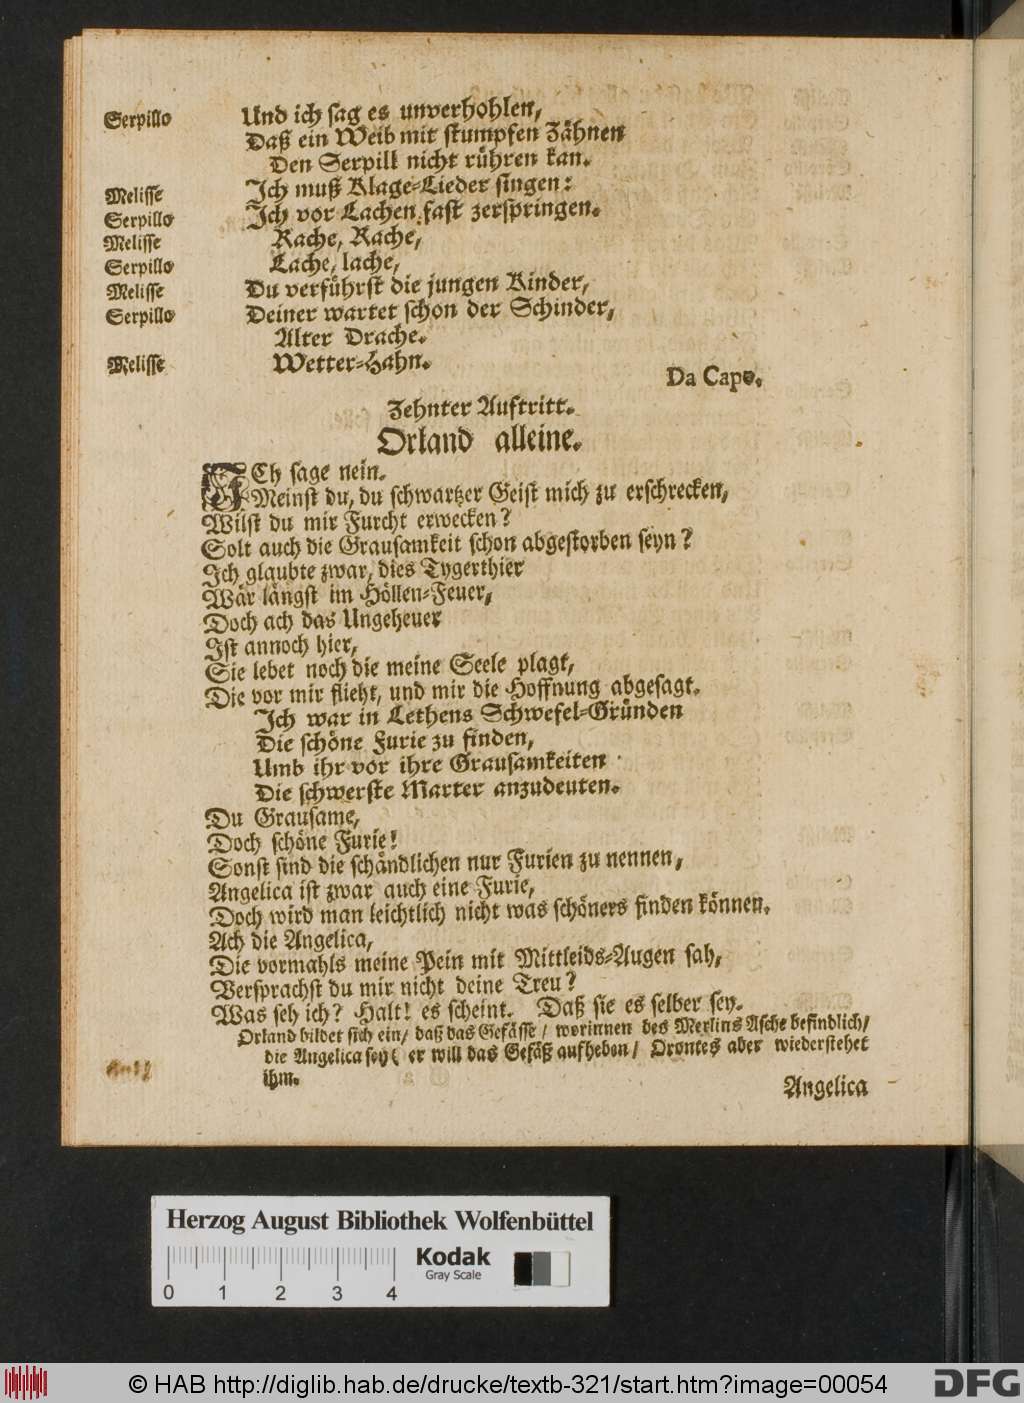 Serpillo Und ich sag es unverhohlen,
Daß ein Weib mit stumpfen Zähnen
Den Serpill nicht rühren kan.
Melisse Ich muß Klage-Lieder singen:
Serpillo Ich vor Lachen fast zerspringen.
Melisse Rache, Rache,
Serpillo Lache, lache,
Melisse Du verführst die jungen Kinder,
Serpillo Deiner wartet schon der Schinder,
Alter Drache.
Melisse Wetter-Hahn.
Da Capo.
Zehnter Auftritt.
Orland alleine.
ICh sage nein.
Meinst du, du schwartzer Geist mich zu erschrecken,
Wilst du mir Furcht erwecken?
Solt auch die Grausamkeit schon abgestorben seyn?
Ich glaubte zwar, dies Tygerthier
Wär längst im Höllen-Feuer,
Doch ach das Ungeheuer
Ist annoch hier,
Sie lebet noch die meine Seele plagt,
Die vor mir flieht, und mir die Hoffnung abgesagt.
Ich war in Lethens Schwefel-Gründen
Die schöne Furie zu finden,
Umb ihr vor ihre Grausamkeiten
Die schwerste Marter anzudeuten.
Du Grausame,
Doch schöne Furie!
Sonst sind die schändlichen nur Furien zu nennen,
Angelica ist zwar auch eine Furie,
Doch wird man leichtlich nicht was schöners finden können.
Ach die Angelica,
Die vormahls meine Pein mit Mittleids-Augen sah,
Versprachst du mir nicht deine Treu?
Was seh ich? Halt! es scheint. Daß sie es selber sey.
Orland bildet sich ein/ daß das Gefässe/ worinnen des Merlins Asche befindlich/
die Angelica sey( er will das Gefäß aufheben/ Orontes aber wiederstehet
ihm.
Angelica
Herzog August Bibliothek Wolfenbüttel
Kodak
Gray Scale
0 1 2 3 4
© HAB http://diglib.hab.de/drucke/textb-321/start.htm?image=00054
DFG